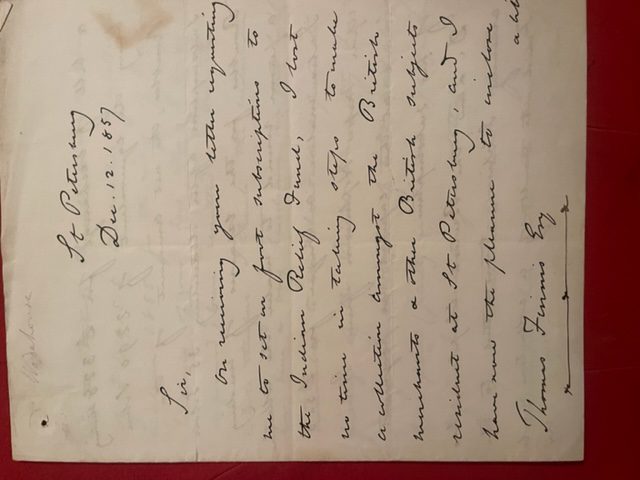 Wodehouse
St Petersburg
Dec. 12. 1857
Sir,
On receiving your letter requesting
me to set on foot subscriptions to
the Indian Relief Fund, I lost
no time in taking steps to make
a collection amongst the British
merchants & other British subjects
resident at St Petersburg; and I
have now the pleasure to inclose
a bil
Thomas Finnis Esq